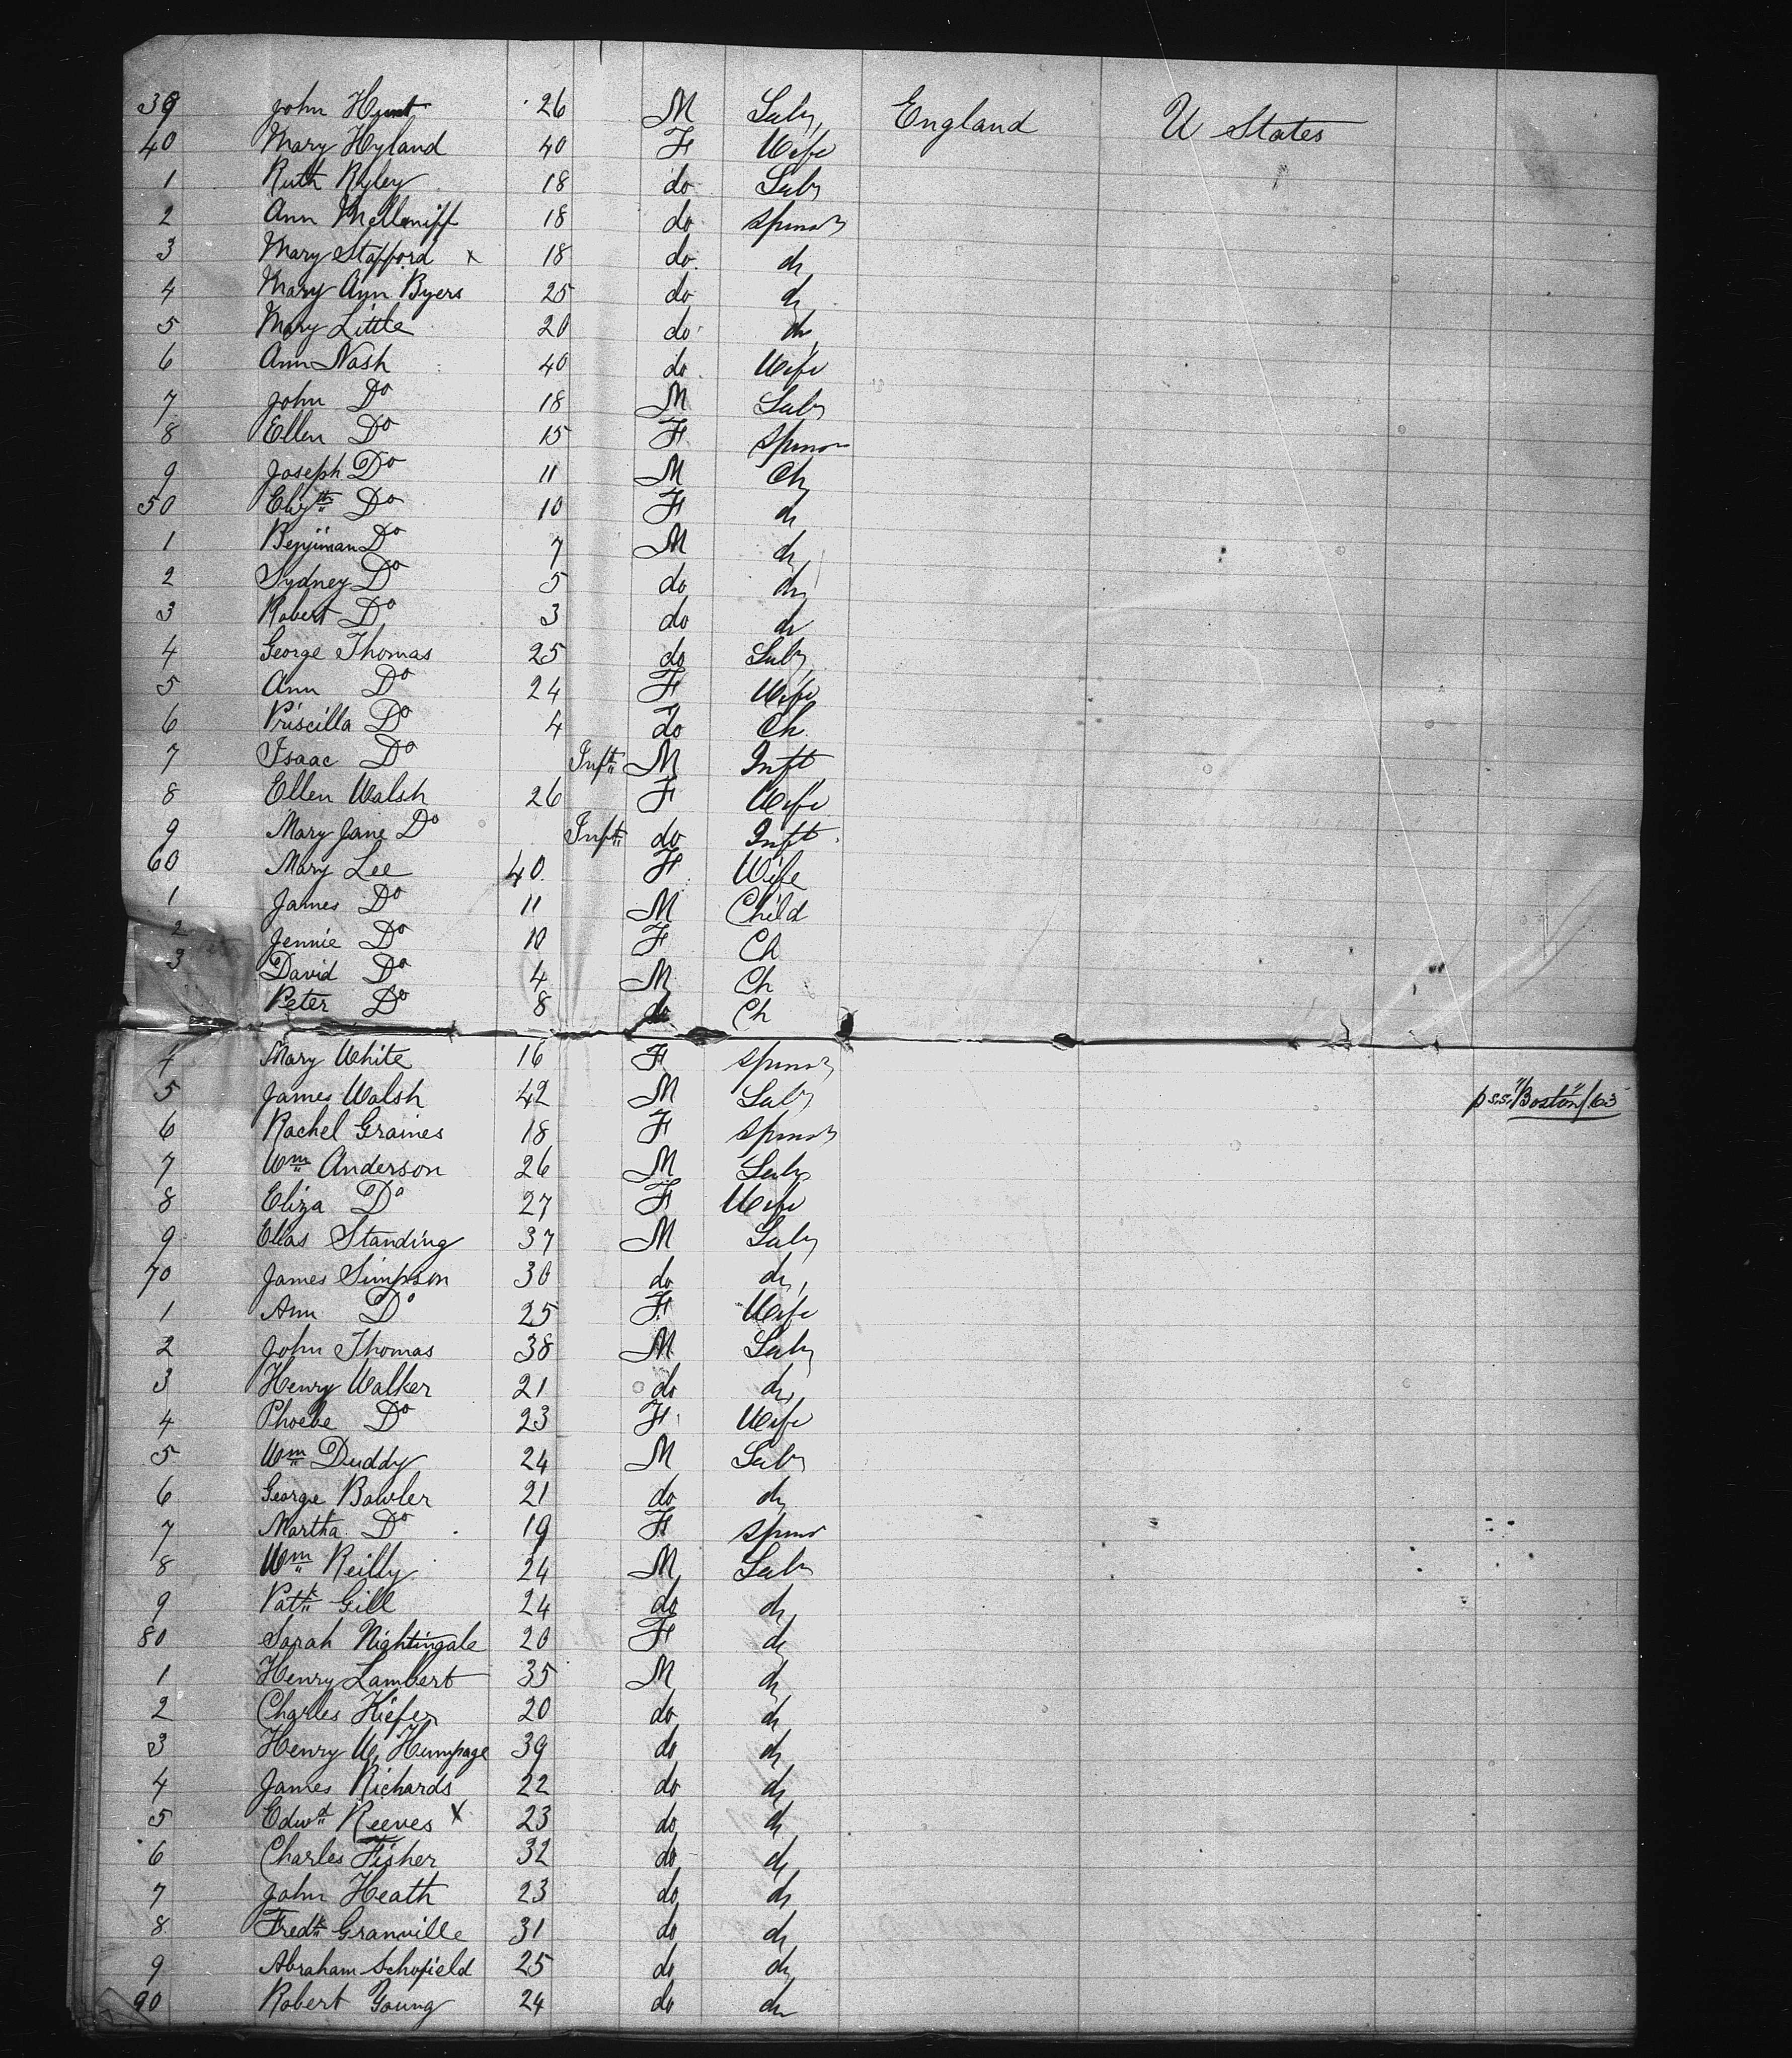 39 John Hunt 26 M Labr England U States
40 Mary Hyland 40 F Wife
1 Ruth Ryley 18 do Labr
2 Ann 18 do spinsr
3 Mary Stafford x 18 do do
4 Mary Ann Byers 25 do do
5 Mary Little 20 do do
6 Ann Nash 40 do Wife
7 John Do 18 M Labr
8 Ellen Do 15 F spinsr
9 Joseph Do 11 M Ch
50 Elizth Do 10 F do
1 Benjiman Do 7 M do
2 Sydney Do 5 do do
3 Robert Do 3 do do
4 George Thomas 25 do Labr
5 Ann Do 24 F Wife
6 Priscilla Do 4 do Ch
7 Isaac Do Inft M Inft
8 Ellen Walsh 26 F Wife
9 Mary Jane Do Inft do Inft
60 Mary Lee 40 F Wife
1 James Do 11 M Child
2 Jennie Do 10 F Ch
3 David Do 4 M Ch
Peter Do 8 do Ch
4 Mary White 16 F spinsr
5 James Walsh 42 M Labr p s.s. "Boston"/63
6 Rachel Graines 18 F spinsr
7 Wm Anderson 26 M Labr
8 Eliza Do 27 F Wife
9 Elias Standing 37 M Labr
70 James Simpson 30 do do
1 Ann Do 25 F Wife
2 John Thomas 38 M Labr
3 Henry Walker 21 do do
4 Phoebe Do 23 F Wife
5 Wm Duddy 24 M Labr
6 George Bowler 21 do do
7 Martha Do 19 F spinsr
8 Wm Reilly 24 M Labr
9 Patk Gill 24 do do
80 Sarah Nightingale 20 F do
1 Henry Lambert 35 M do
2 Charles Kiefer 20 do do
3 Henry W. Humpage 39 do do
4 James Richards 22 do do
5 Edwd Reeves x 23 do do
6 Charles Fisher 32 do do
7 John Heath 23 do do
8 Fredk Granville 31 do do
9 Abraham Schofield 25 do do
90 Robert Young 24 do do